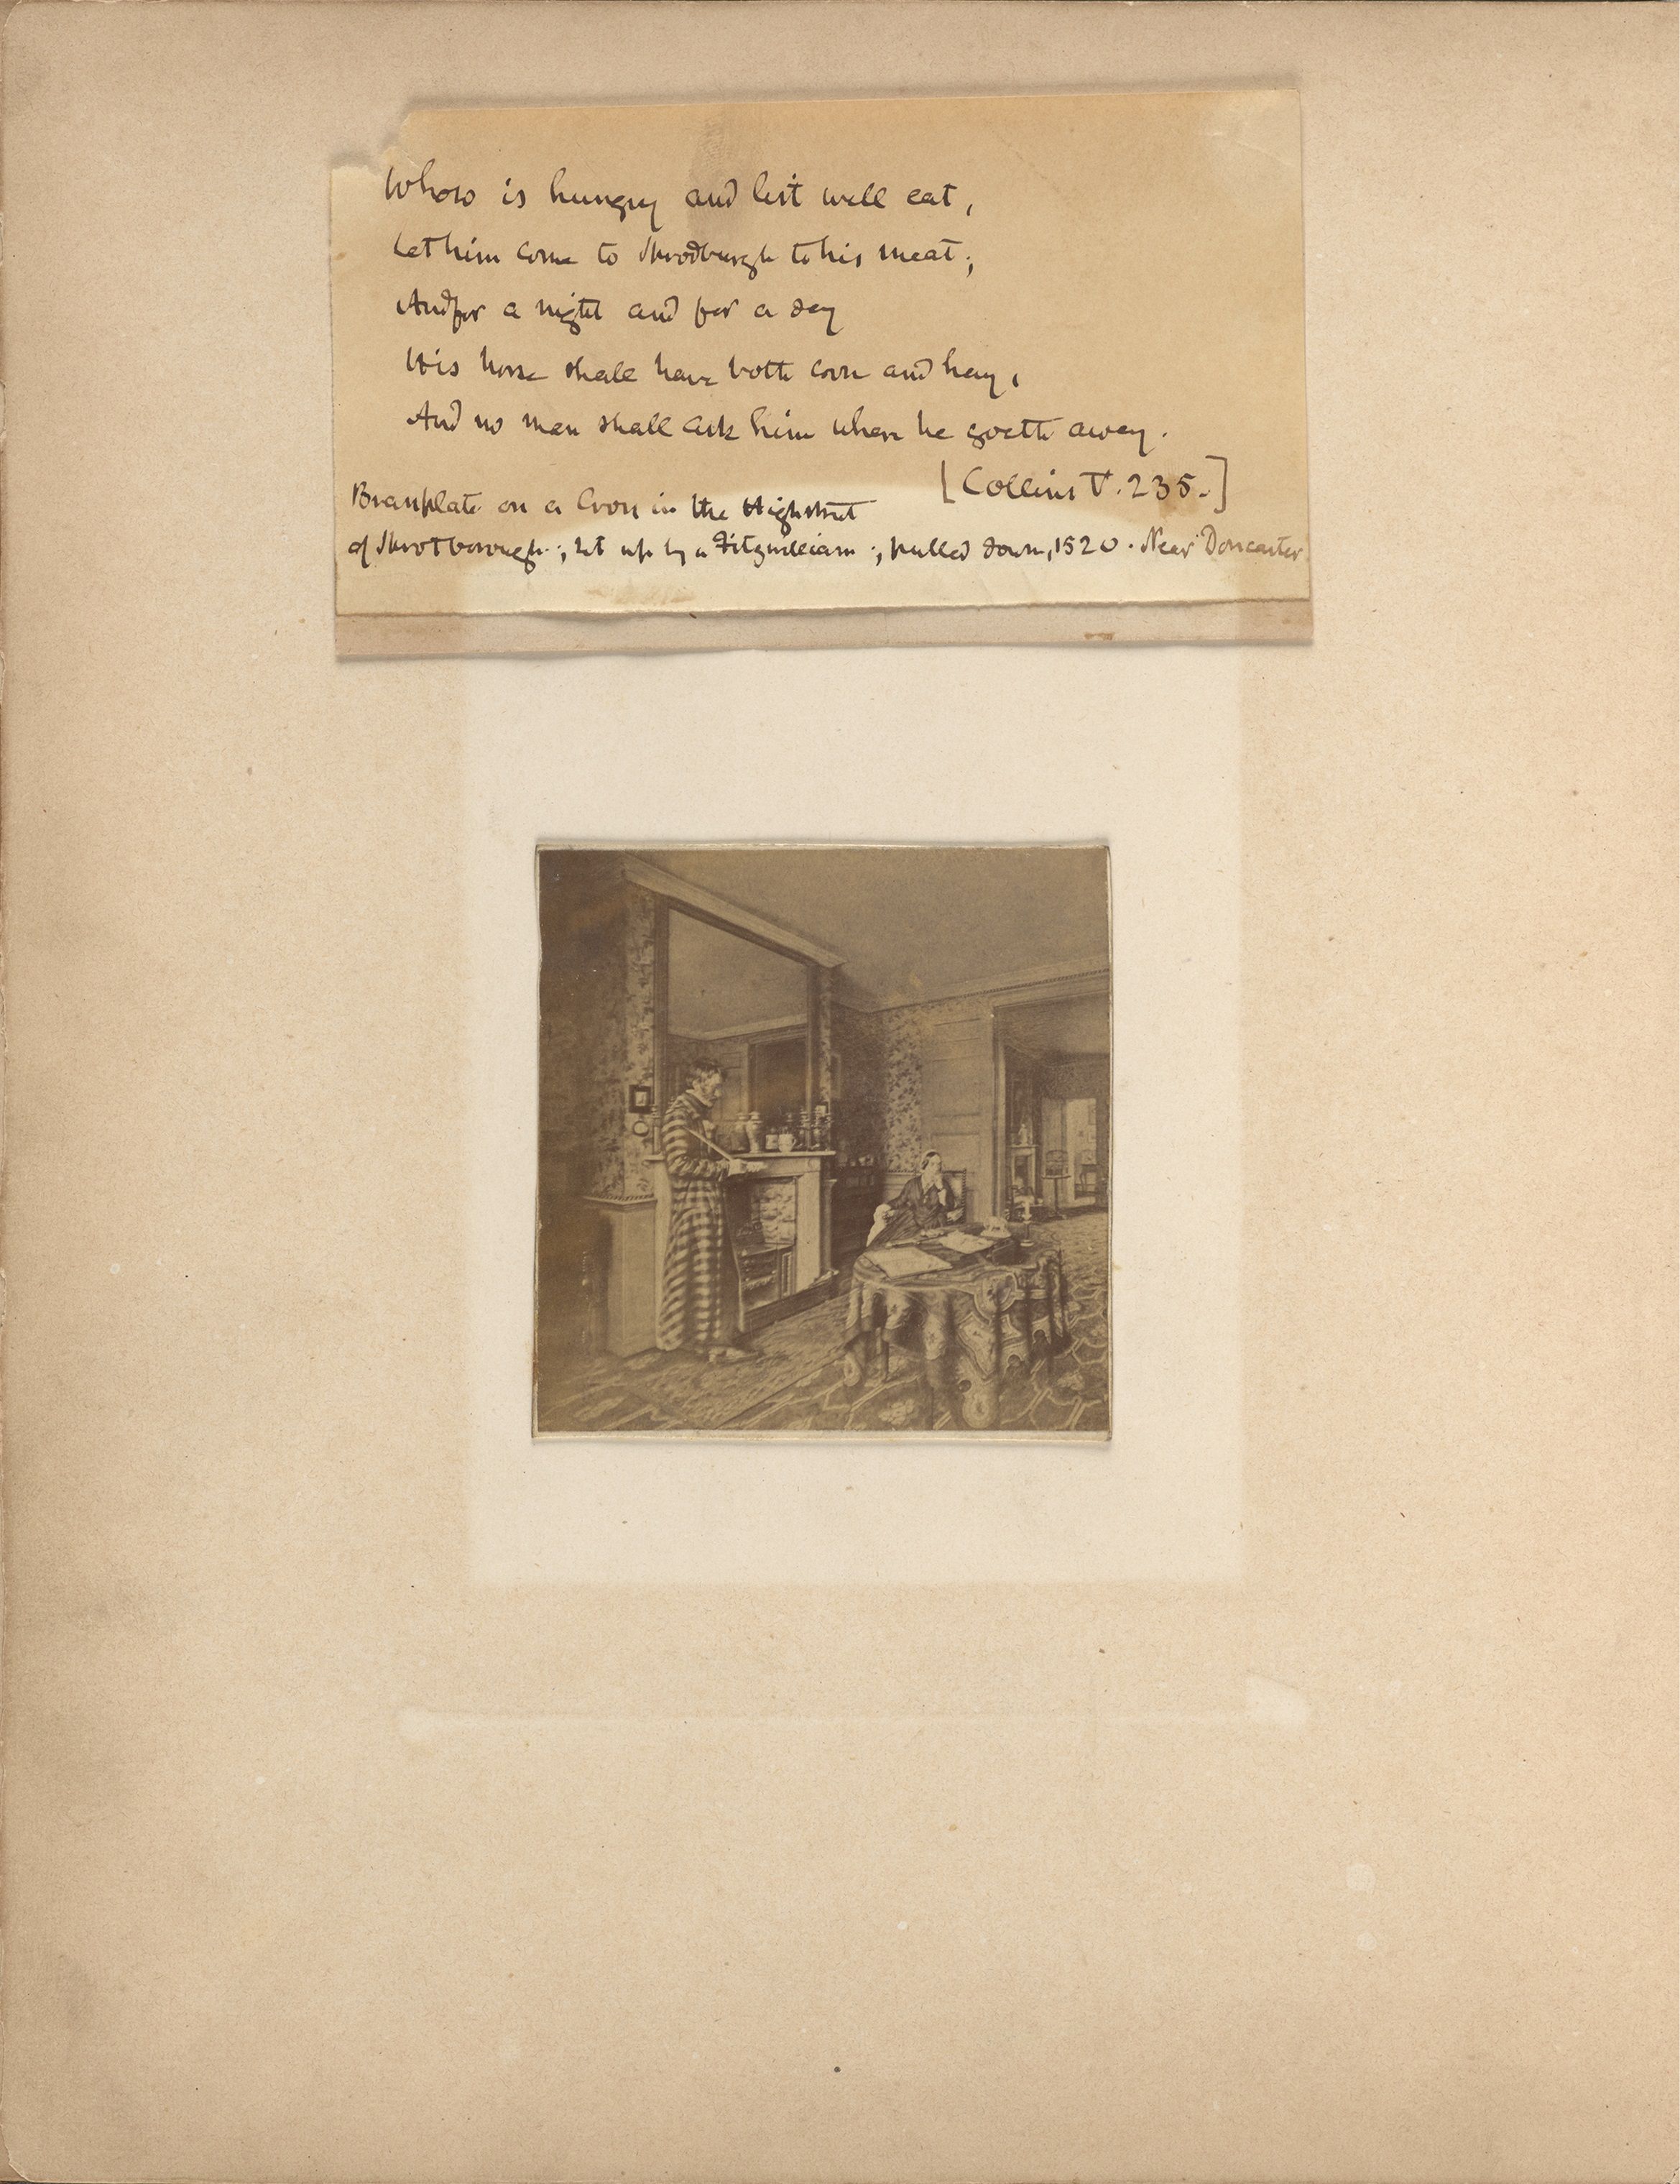 Whoso is hungry and list well eat,
Let him come to Sprodburgh to his meat;
And for a night and for a day
His horse shall have both corn and hay,
And no man shall ask him when he goeth away.
[Collins V. 235.]
Brassplate on a Cross in the Highstreet
of Sprotborough; set up by a Fitzwilliam; pulled down, 1520. Near Doncaster